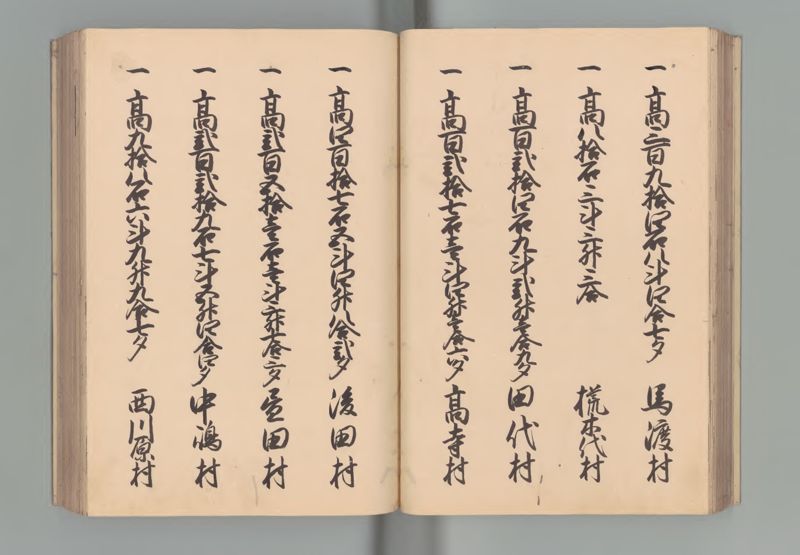 一 高三百九拾四石八斗四合七夕 馬渡村
一 高八拾石三斗三升三合 荒木代村
一 高百弐拾四石九斗弐升壱合九夕 田代村
一 高百弐拾七石壱斗四升壱合六夕 高寺村
一 高四百拾七石五斗四升八合弐夕 後田村
一 高弐百五拾壱石壱斗三升七合三夕 昼田村
一 高弐百弐拾九石七斗五升四合四夕 中嶋村
一 高九拾八石六斗九升九合七夕 西川原村